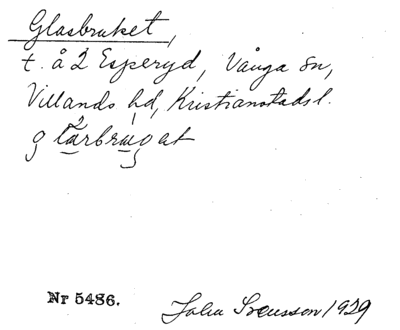 Glasbruket,
t. å 2 Esperyd, Vånga sn,
Villands hd, Kristianstads l.
glarbrugat
Nr 5486.
Svensson 1929